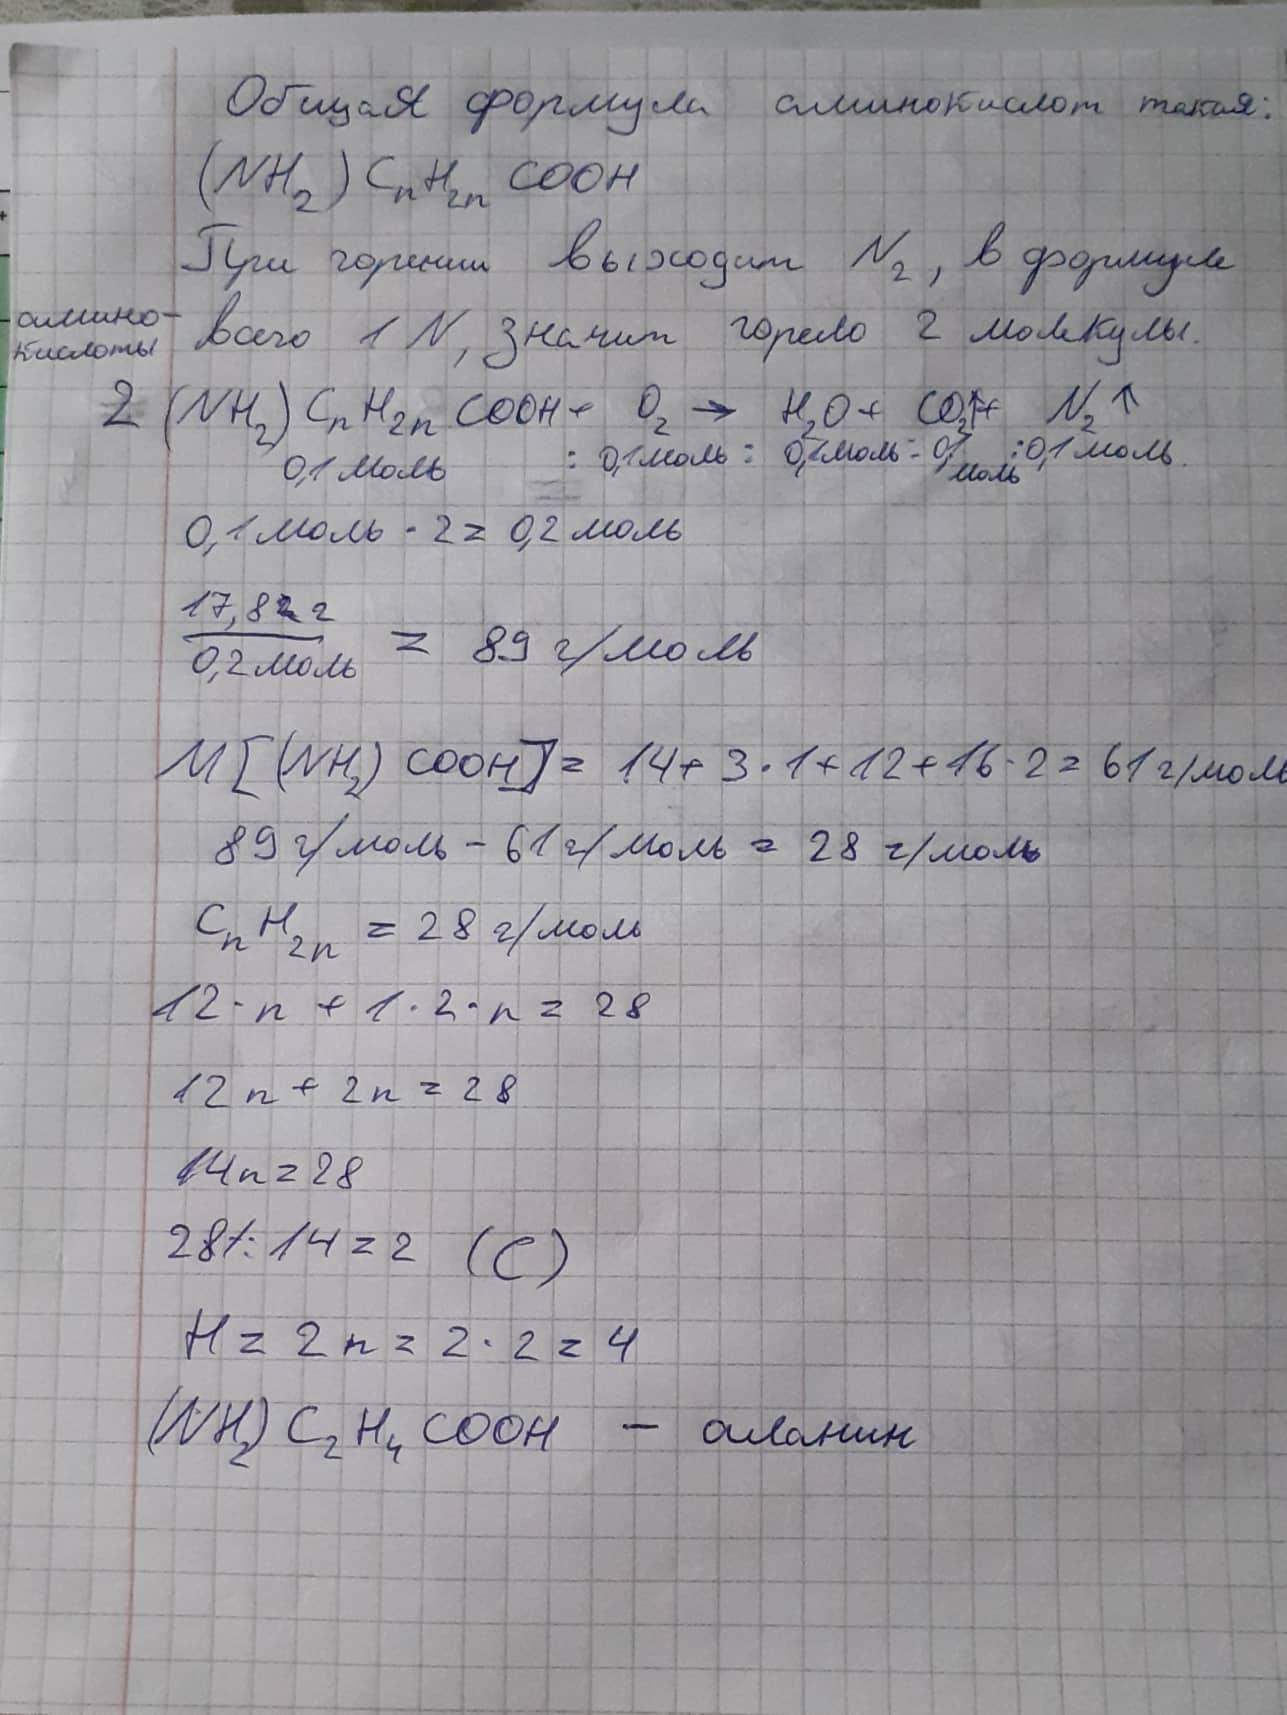 Общая формула аминокислот такая:
(NH₂) CₙH₂ₙ COOH
При горении выходит N₂, в формуле
амино-
кислоты
всего 1 N, значит горело 2 молекулы.
2 (NH₂) CₙH₂ₙ COOH + O₂ → H₂O + CO₂↑ + N₂↑
0,1 моль : 0,1 моль : 0,1 моль : 0,1 моль : 0,1 моль.
0,1 моль · 2 = 0,2 моль
17,82 г
0,2 моль = 89 г/моль
M [(NH₂) COOH] = 14 + 3 · 1 + 12 + 16 · 2 = 61 г/моль
89 г/моль - 61 г/моль = 28 г/моль
CₙH₂ₙ = 28 г/моль
12 · n + 1 · 2 · n = 28
12n + 2n = 28
14n = 28
28 : 14 = 2 (C)
H = 2n = 2 · 2 = 4
(NH₂) C₂H₄ COOH — аланин